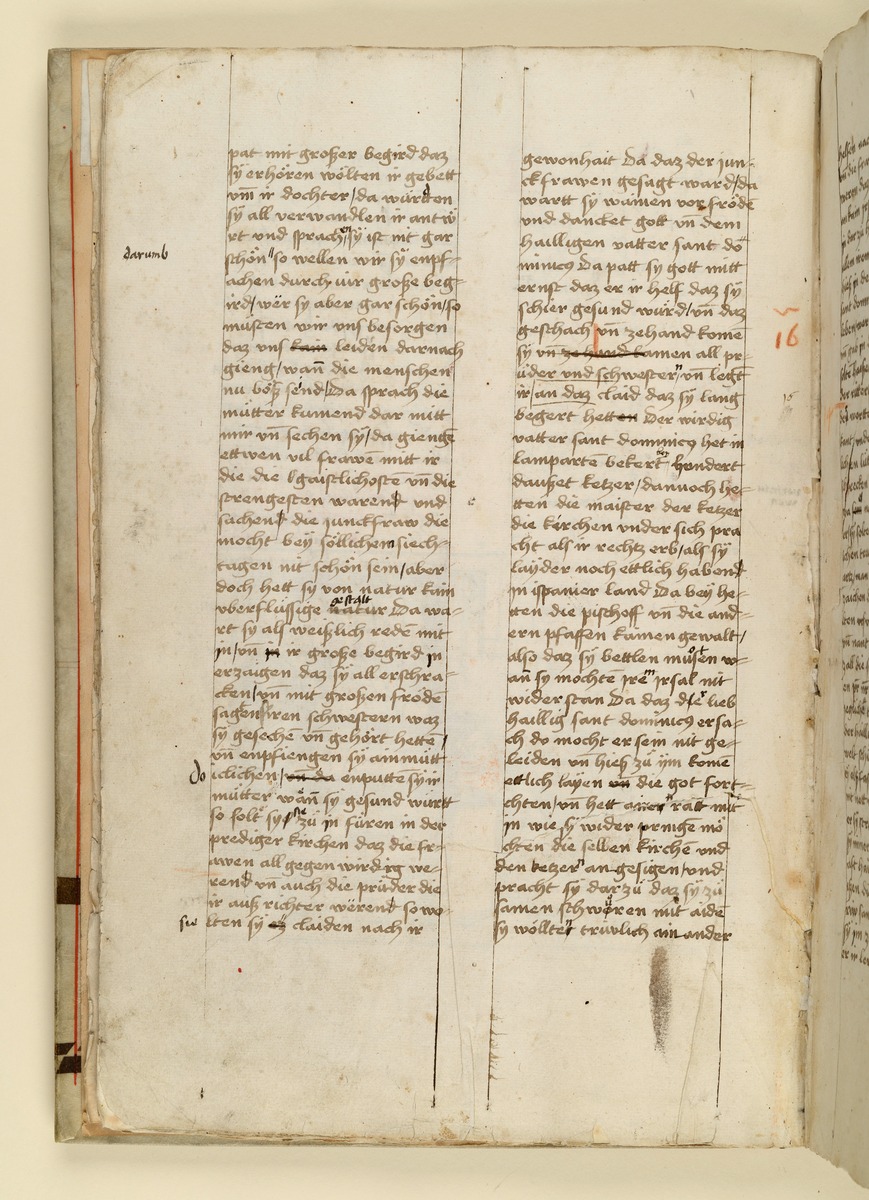 pat mit großer begird daz
sÿ erhören wölten ir gebett
vm̄ ir dochter / da wurden
sÿ all verwandlen ir antw̄
rt vnd sprachen sÿ ist nit gar
darumb
schön so wellen wir sÿ enpf=
achen durch vir große beg=
ird / wër sÿ aber gar schön / so
müsten wir vns besorgen
daz vns kain leiden darnach
gieng / wan̄ die menschen
nu böß send / Da sprach die
mütter kumend dar mitt
mir vn̄ sechen sÿ / da giengē
ettwen vil frawē mitt ir
die die gaistlichosten vn̄ die
strengesten warend vnd
sachend die junckfraw die
mocht beÿ söllichem siech=
tagen nit schön sein / aber
doch hett sÿ von natur kain
gestalt
vberflüssige natur Da wa=
rt sÿ als weißlich redē mit
jn / vn̄ in ir große begird jn
erzaigen daz sÿ all erschra=
cken / vn̄ mit großen frödē
sagen iren schwestern waz
sÿ gesechē vn̄ gehört hettē /
vn̄ enpfiengen sÿ ainmütt
Do
iclichen / vn̄ da enputte sÿ ir
mütter wan̄ sÿ gesund württ
so solt sÿ sie zü jn füren in der
prediger kirchen daz die fr=
awen all gegen wirdig we=
rend vn̄ auch die prüder die
ir auß richter wërend so wo=
sie
lten sÿ ez claiden nach ir
gewonhait Da daz der jun=
ckfrawen gesagt ward / da
wartt sÿ wainen vor frödē
vnd dancket gott vn̄ dem
hailligen vatter sant do
minicus Da patt sÿ gott mitt
ernst daz er ir helf daz sÿ
schier gesund würd / vn̄ daz
geschach vn̄ zehand komē
16
sÿ vn̄ ze hand kamen all pr=
üder vnd schwestern vn̄ legt
ir / an daz claid daz sÿ lang
begert hetten Der wirdig
vatter sant dominicus het in
lampartē bekert hondert
daußet ketzer / dannoch he=
tten die maister der ketzer
die kirchen vnder sich pra
cht als ir rechtz erb / als sÿ
laÿder noch ettlich habend
in ispanier land Da beÿ he=
tten die pischoff vn̄ die and=
ern pfaffen kainen gewalt /
also daz sÿ bettlen müsen w=
an̄ sÿ mochte irem irsal nit
widerstan Da daz der lieb
haillig sant dominicus ersa=
ch do mocht er sein nit ge=
leiden vn̄ hieß zü ÿm komē
ettlich laÿen die got fort=
chten / vn̄ hett ratt mit
jn wie sÿ wider mö
chten die selben kirchē vnd
den ketzern an gesigen / vnd
pracht sÿ dar zü daz sÿ zü
samen schwëren mit aidē
sÿ wöllten trüwlich ain ander